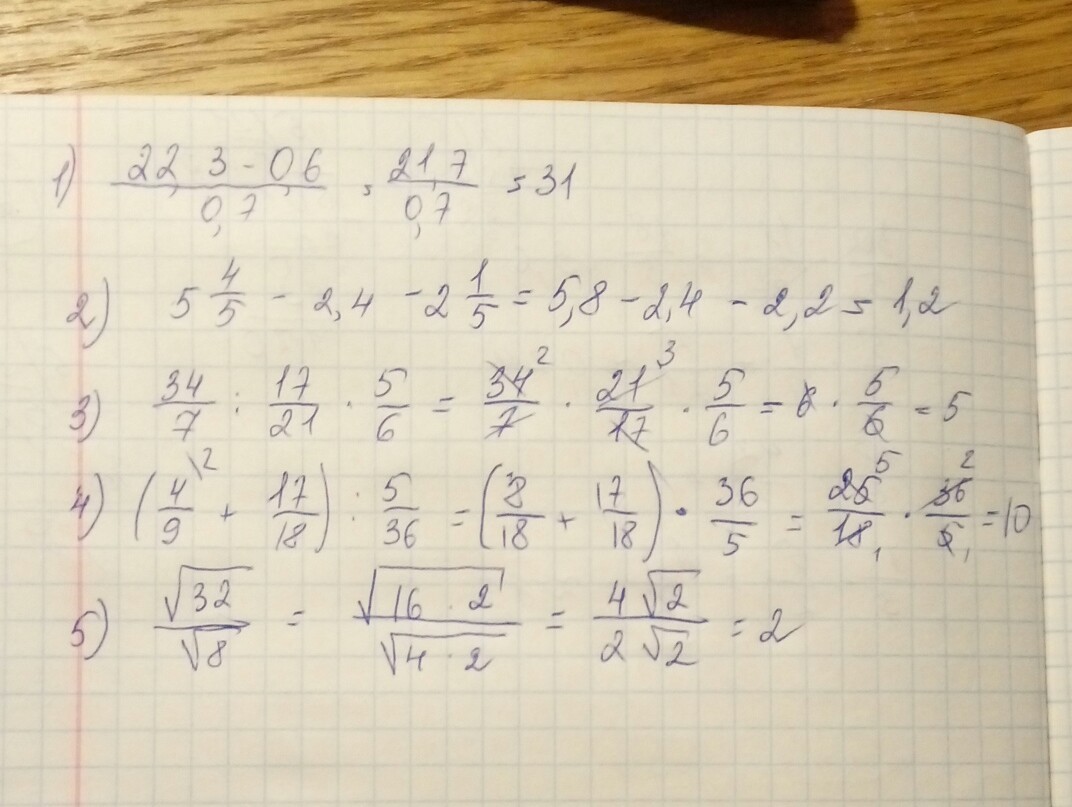 1) (22,3 - 0,6)/0,7 = 21,7/0,7 = 31
2) 5 4/5 - 2,4 - 2 1/5 = 5,8 - 2,4 - 2,2 = 1,2
3) 34/7 : 17/21 · 5/6 = 34²/7 · 21³/17 · 5/6 = 6 · 5/6 = 5
4) (4\²/9 + 17/18) : 5/36 = (8/18 + 17/18) · 36/5 = 25⁵/18₁ · 36²/5₁ = 10
5) √32/√8 = √(16 · 2)/√(4 · 2) = 4√2/2√2 = 2